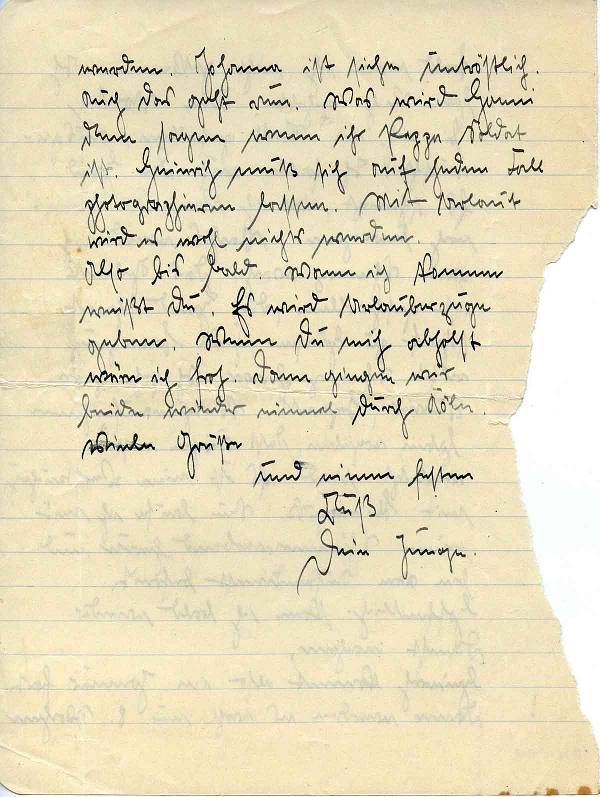 werden. Johanna ist sicher untröstlich.
Auch das geht rum. Was wird Hanni
denn sagen wenn ihr Pappa Soldat
ist. Heinrich muß sich auf jeden Fall
photographieren lassen. Mit Urlaub
wird es wohl nichts werden.
Also bis bald. Wann ich komme
weißt du. Es wird Urlauberzüge
geben. Wenn du mich abholst
wäre ich froh. Dann gingen wir
beide wieder einmal durch Köln.
Viele Grüße
und einen festen
Kuß
Dein Junge.